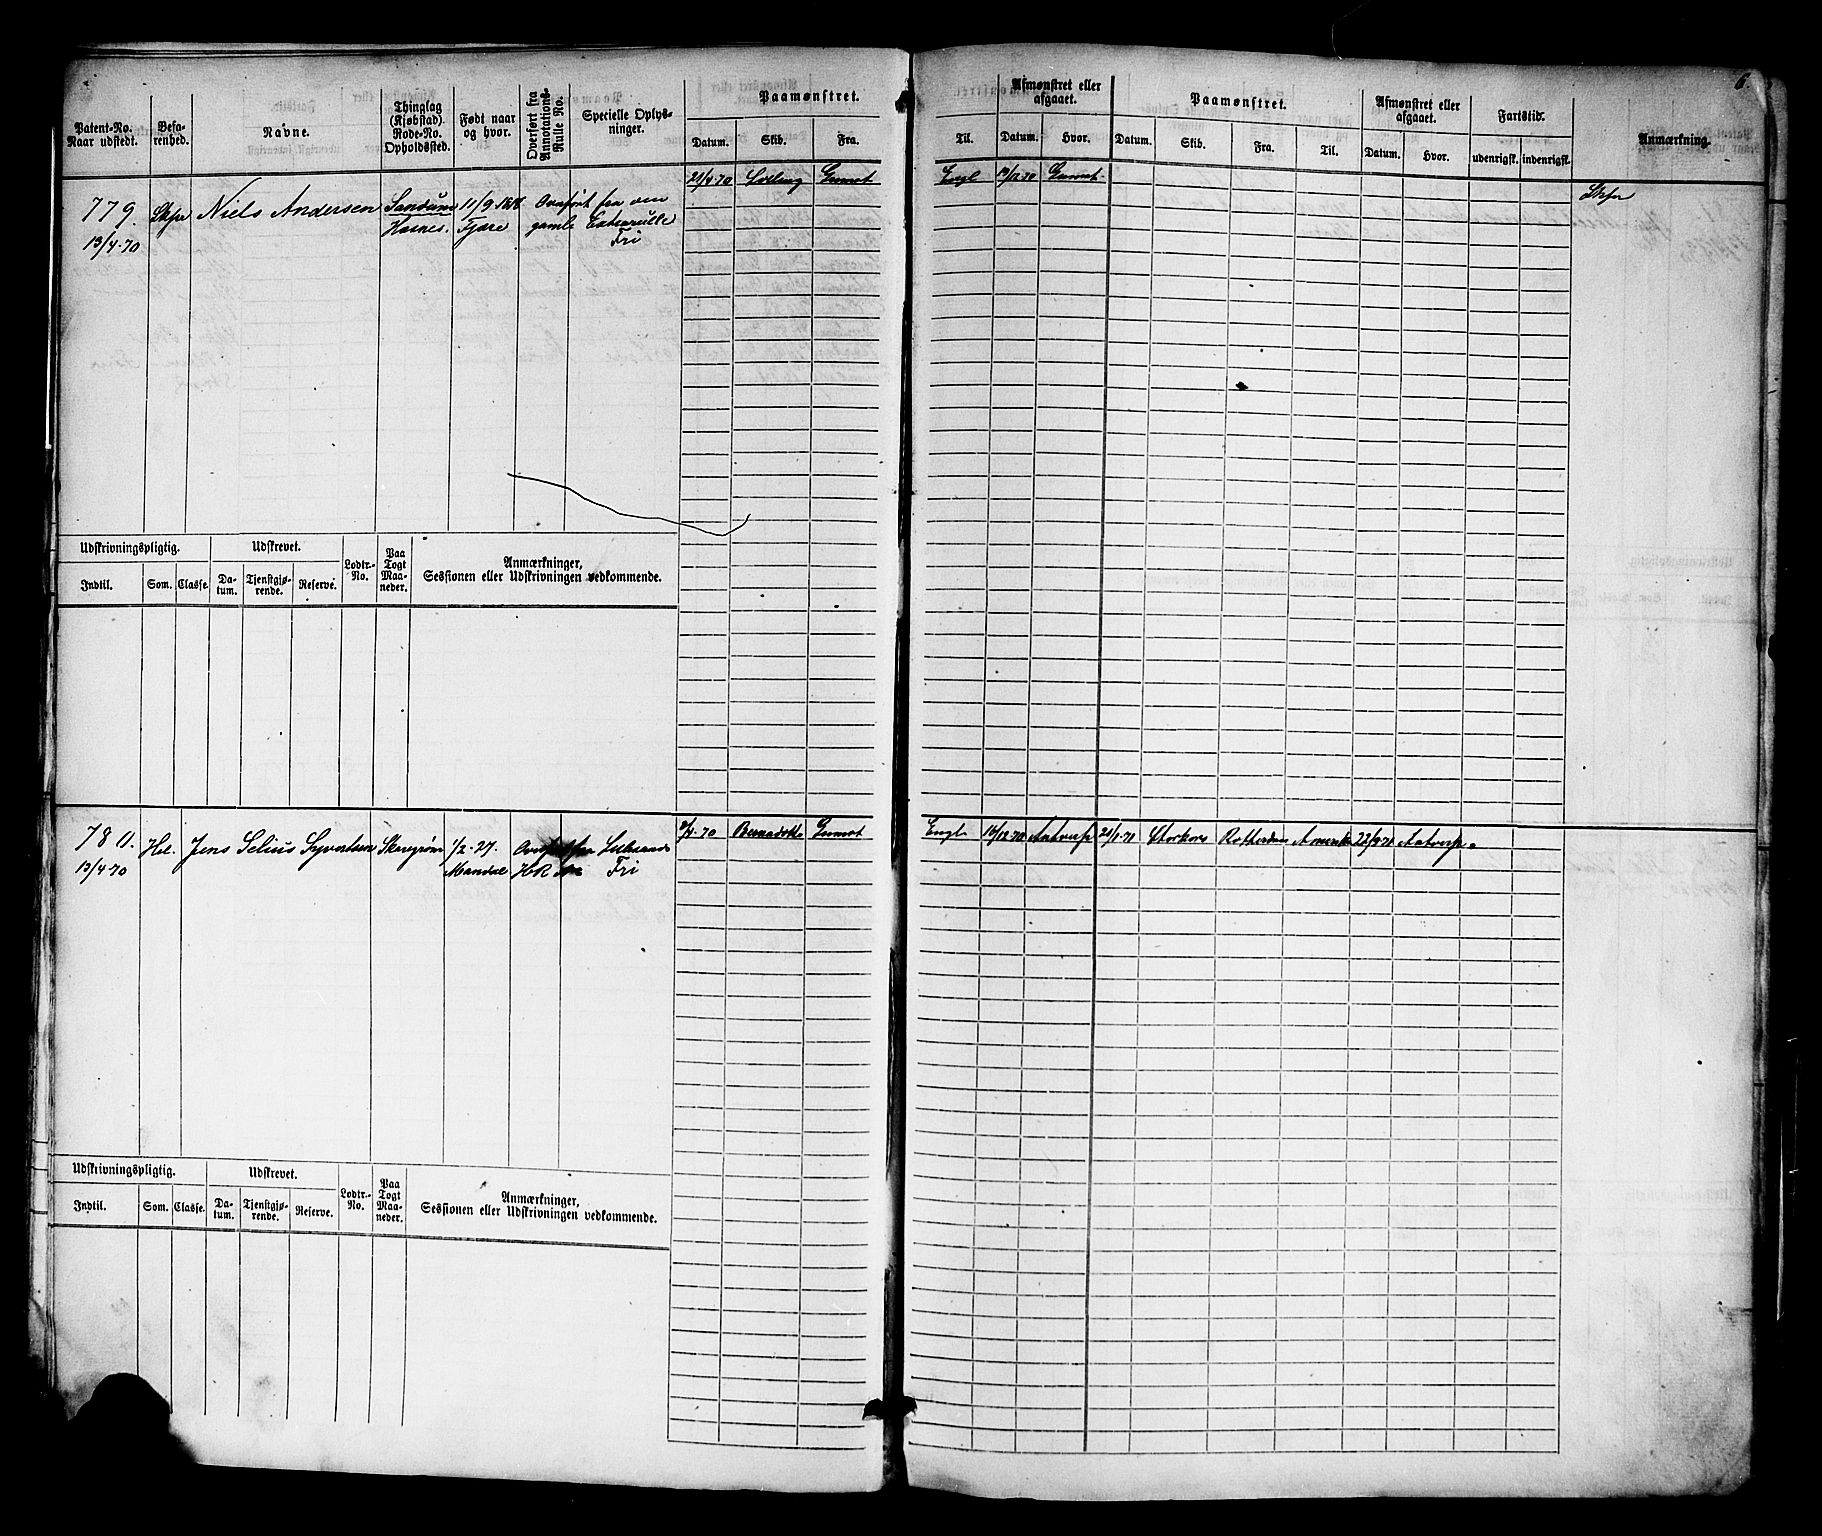 6.
Patent-No. Naar udstedt.
Befarenhed.
Navne.
Thinglag (Kjøbstad). Rode-No. Opholdssted.
Født naar og hvor.
Overført fra Annotations-Rulle No.
Specielle Oplysninger.
Paamønstret.
Datum. Skib. Fra.
Til.
Afmønstret eller afgaaet.
Datum. Hvor.
Paamønstret.
Datum. Skib. Fra. Til.
Afmønstret eller afgaaet.
Datum. Hvor.
Fartstid.
udenrigsk. indenrigsk.
Anmærkning.
779 Skpr Niels Andersen 11/9 Overført fra den
13/4-70 Fjære gamle Extrarulle
Fri
21/4-70 Grmst Engl 19/12-70 Grmst Skpr
Udskrivningspligtig. Udskrevet. Lodtr.-No. Paa Togt Maaneder. Anmærkninger, Sessionen eller Udskrivningen vedkommende.
Indtil. Som. Classe. Datum. Tjenstgjørende. Reserve.
780. Jens Selius Syvertsen 1/2-27. Overført fra
13/4-70 Mandal HR Fri
9/4-70 Bernadotte Grmst Engl 16/12-70 Antverp 21/1-71 Storkors Rotterdam Amerika Antverp.
Udskrivningspligtig. Udskrevet. Lodtr.-No. Paa Togt Maaneder. Anmærkninger, Sessionen eller Udskrivningen vedkommende.
Indtil. Som. Classe. Datum. Tjenstgjørende. Reserve.